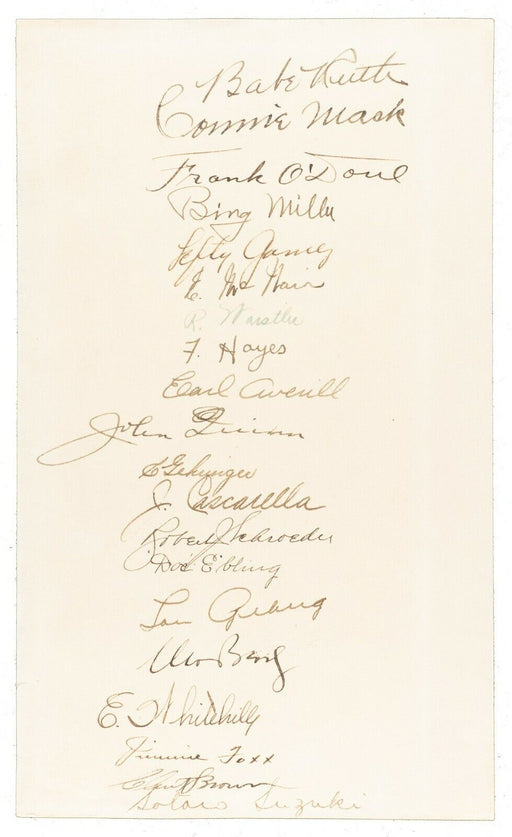 Babe Ruth
Connie Mack
Frank O'Doul
Bing Miller
Lefty Gomez
E. McNair
R. Warstler
F. Hayes
Earl Averill
John Quinn
C Gehringer
J. Cascarella
Robert J Schroeder
"Doc" Ebling
Lou Gehrig
Moe Berg
E. Whitehill
Jimmie Foxx
Clint Brown
Sotaro Suzuki